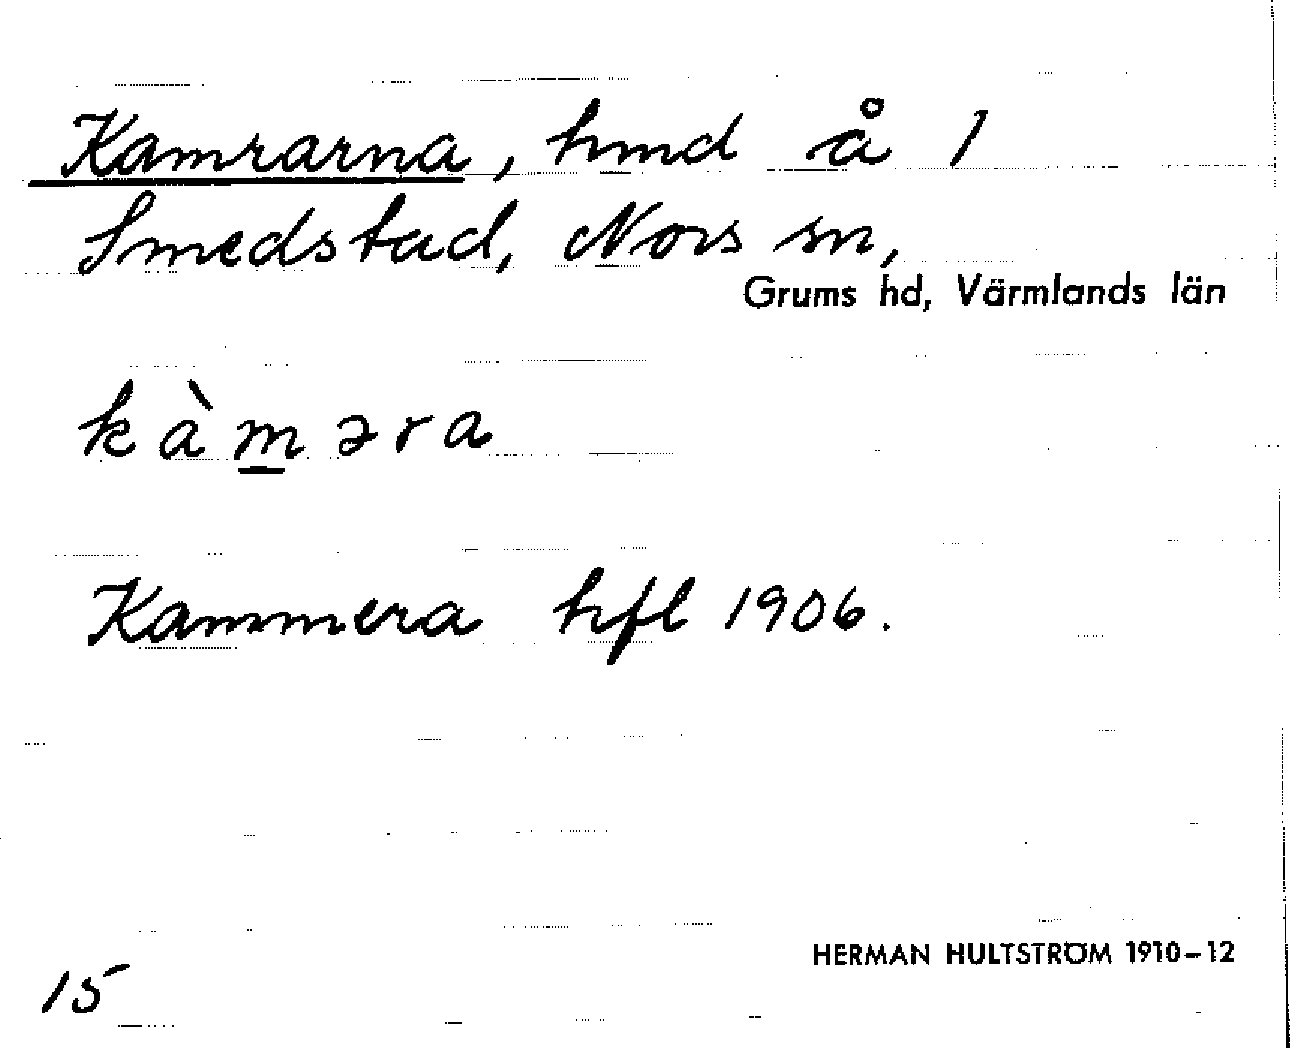 Kamrarna, hmd å 1
Smedstad, Nors sn,
Grums hd, Värmlands län
kàm̲əra
Kammera hfl 1906.
HERMAN HULTSTRÖM 1910–12
15